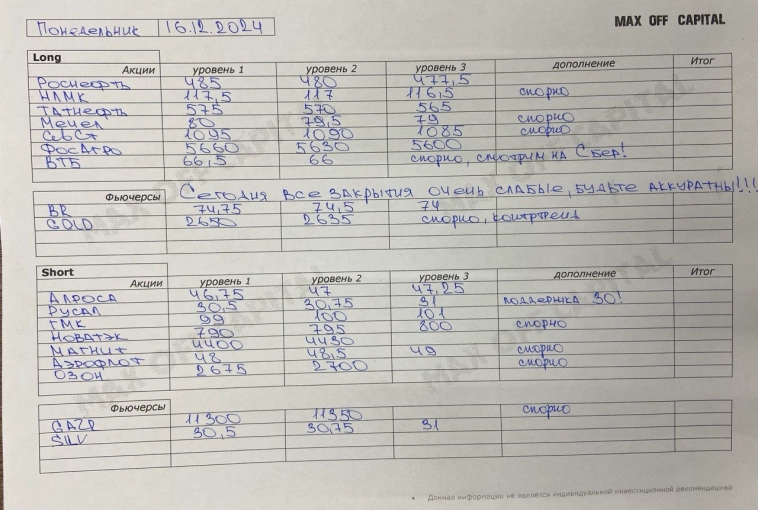 Понедельник 16.12.2024 MAX OFF CAPITAL
Long
Акции уровень 1 уровень 2 уровень 3 дополнение Итог
Роснефть 485 480 477,5
НЛМК 117,5 117 116,5 спорно
Татнефть 575 570 565
Мечел 80 79,5 79 спорно
СевСт 1095 1090 1085 спорно
ФосАгро 5660 5630 5600
ВТБ 66,5 66 спорно, смотрим на Сбер!
Фьючерсы Сегодня все закрытия очень слабые, будьте аккуратны!!!
BR 74,75 74,5 74
GOLD 2650 2635 спорно, контртренд
Short
Акции уровень 1 уровень 2 уровень 3 дополнение Итог
Алроса 46,75 47 47,25
Русал 30,5 30,75 31 поддержка 30!
ГМК 99 100 101
Новатэк 790 795 800 спорно
Магнит 4400 4430
Аэрофлот 48 48,5 49 спорно
Озон 2675 2700 спорно
Фьючерсы спорно
GAZR 11300 11350
SILV 30,5 30,75 31
Данная информация не является индивидуальной инвестиционной рекомендацией
MAX OFF CAPITAL
MAX OFF CAPITAL
MAX OFF CAPITAL
MAX OFF CAPITAL